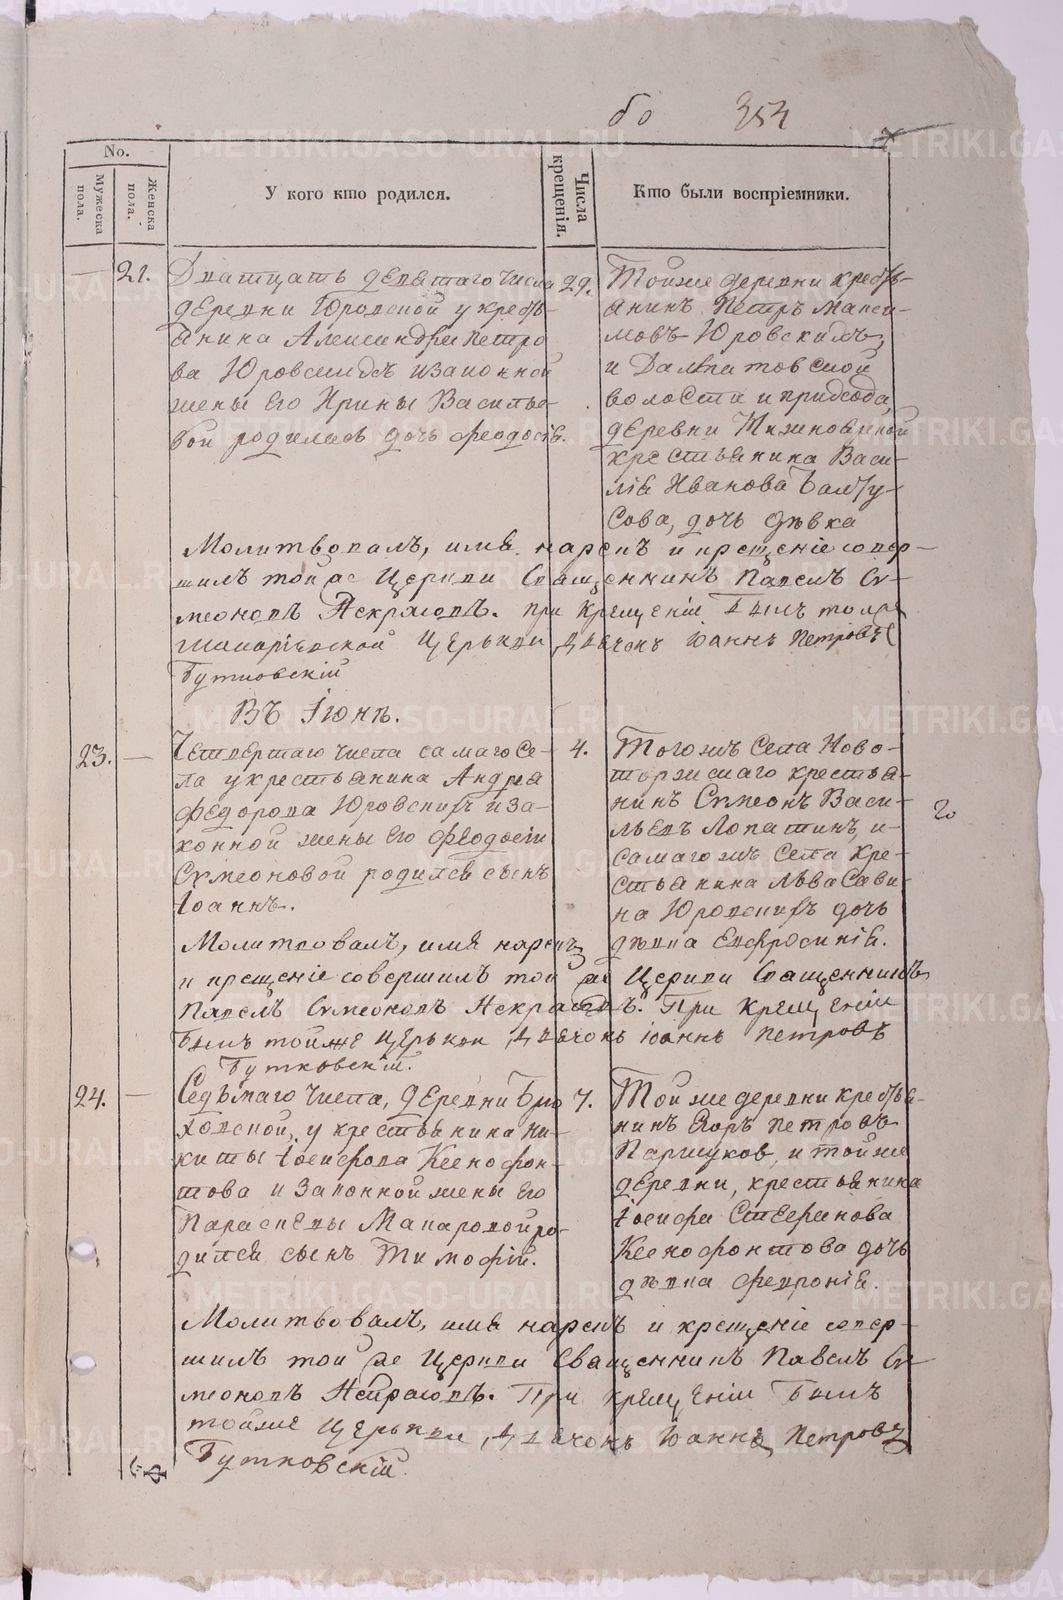 бо 353
No.
Мужеска пола.
Женска пола.
У кого кто родился.
Числа крещенія.
Кто были воспріемники.
21.
Дватцать девятаго числа
деревни Юровской у кресть-
янина Александра Петро
ва Юровскихъ и законной
жены его Ирины Василье-
вой родилась дочь Феодосія.
29.
Тойже деревни кресть-
янинъ Петръ Макси-
мовъ Юровскихъ,
и Далматовской
волости и прихода,
деревни
крестьянина Васи-
лія Иванова
сова, дочь дѣвка
Молитвовалъ, имя нарекъ и крещеніе совер-
шилъ той же Церкви Священникъ Павелъ Си-
меоновъ Некрасовъ. При крещеніи былъ тояже
Церькви, Дьячокъ Іоаннъ Петровъ
Бутковскій
Въ Іюнѣ.
23.
Четвертаго числа самаго Се-
ла у крестьянина Андрея
Федорова Юровскихъ и за-
конной жены его Феодосіи
Симеоновой родился сынъ
Іоаннъ.
4.
Тогожъ Села Ново-
торжскаго крестья-
нинъ Симеонъ Васи-
льевъ Лопатинъ, и
самагожъ Села кре-
стьянина Льва Сави-
на Юровскихъ дочь
дѣвка Евфросинія.
Молитвовалъ, имя нарекъ
и крещеніе совершилъ той же Церкви Священникъ
Павелъ Симеоновъ Некрасовъ. При крещеніи
былъ тойже Церькви, Дьячокъ Іоаннъ Петровъ
Бутковскій.
24.
Седьмаго числа, деревни Брю
ховской, у крестьянина Ни-
киты Іосифова Ксенофон-
това и законной жены его
Параскевы Макаровой ро-
дился сынъ Тимофій.
7.
Тойже деревни крестья-
нинъ Егоръ Петровъ
Паршуков, и тойже
деревни, крестьянина
Іосифа Стефанова
Ксенофонтова дочь
дѣвка Февронія.
Молитвовалъ, имя нарекъ и крещеніе совер-
шилъ той же Церкви Священникъ Павелъ Си-
меоновъ Некрасовъ. При крещеніи былъ
тойже Церькви, Дьячокъ Іоаннъ Петровъ
Бутковскій.